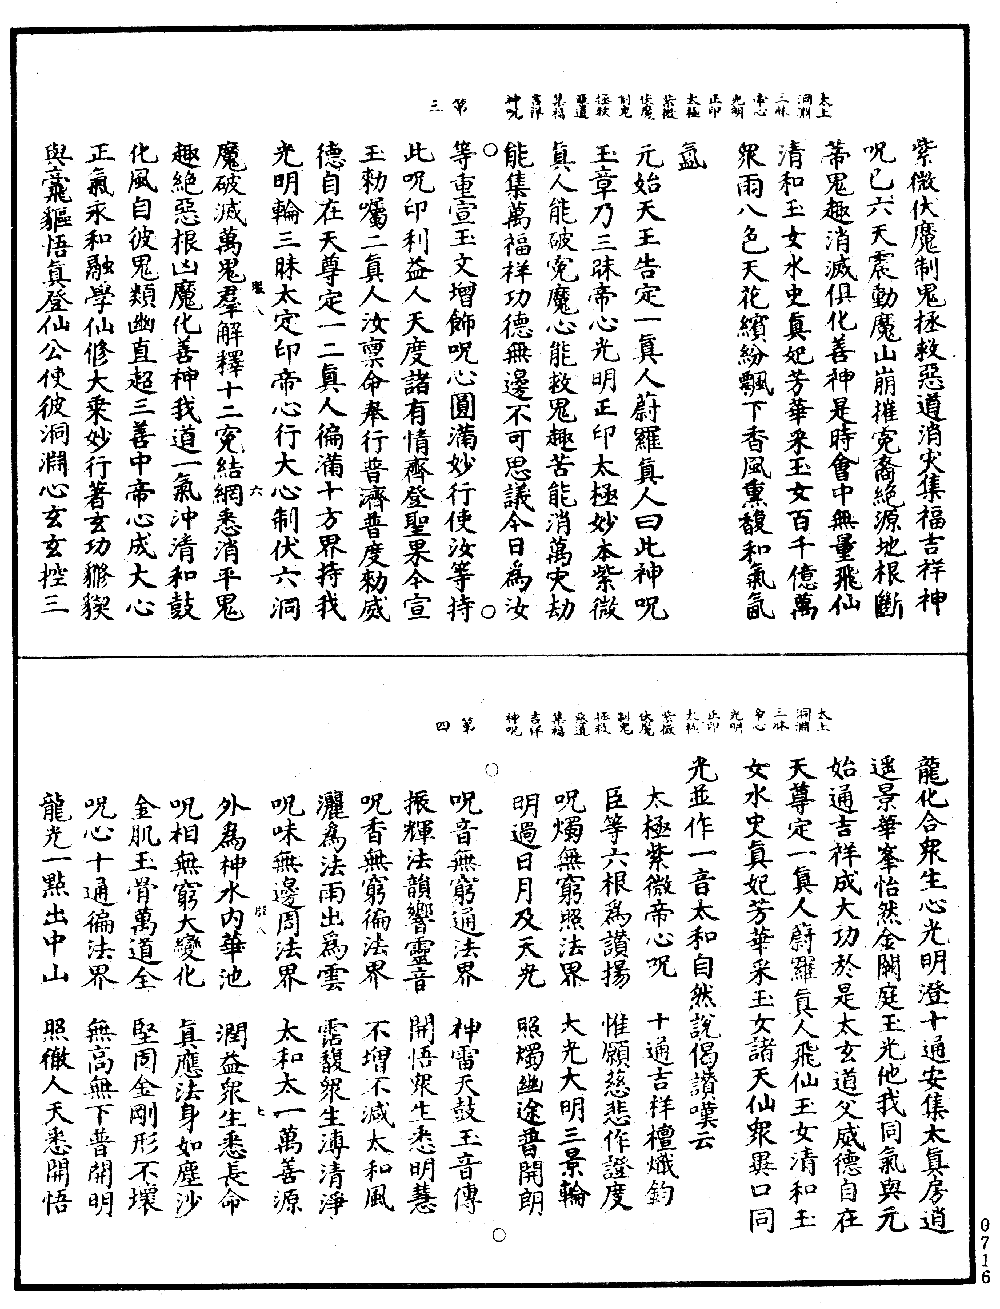 太上洞淵三昧帝心光明正印太極紫微伏魔制鬼拯救惡道集福吉祥神呪 第三
紫微伏魔制鬼拯救惡道消灾集福吉祥神
呪已六天震動魔山崩摧寃裔絶源地根斷
蒂鬼趣消滅俱化善神是時會中無量飛仙
清和玉女水史真妃芳華采玉女百千億萬
衆雨八色天花繽紛飄下香風熏馥和氣氤
氳
元始天王告定一真人蔚羅真人曰此神呪
玉章乃三昧帝心光明正印太極妙本紫微
真人能破寃魔心能救鬼趣苦能消萬灾劫
能集萬福祥功德無邊不可思議今日為汝
等重宣玉文增飾呪心圓滿妙行使汝等持
此呪印利益人天度諸有情齊登聖果今宣
玉勑囑二真人汝禀命奉行普濟普度勑威
德自在天尊定一二真人徧滿十方界持我
光明輪三昧太定印帝心行大心制伏六洞
魔破滅萬鬼羣解釋十二寃結網悉消平鬼
趣絶惡根凶魔化善神我道一氣冲清和鼓
化風自彼鬼類幽直超三善中帝心成大心
正氣永和融學仙修大乘妙行著玄功獬猰
與毚飛軀悟真登仙公使彼洞淵心玄玄控三
太上洞淵三昧帝心光明正印太極紫微伏魔制鬼拯救惡道集福吉祥神呪 第四
龍化合衆生心光明澄十通安集太真房逍
遥景華峯怡然金闕庭玉光他我同氣與元
始通吉祥成大功於是太玄道父威德自在
天尊定一真人蔚羅真人飛仙玉女清和玉
女水史真妃芳華采玉女諸天仙衆異口同
光並作一音太和自然說偈讚嘆云
太極紫微帝心呪 十通吉祥檀熾鈞
臣等六根為讚揚 惟願慈悲作證度
呪燭無窮照法界 大光大明三景輪
明過日月及天光 照燭幽途普開朗
呪音無窮通法界 神雷天鼓玉音傳
振輝法韻響靈音 開悟衆生悉明慧
呪香無窮徧法界 不增不減太和風
灑為法雨出為雲 霑馥衆生溥清淨
呪味無邊周法界 太和太一萬善源
外為神水内華池 潤益衆生悉長命
呪相無窮大變化 真應法身如塵沙
金肌玉骨萬道全 堅固金剛形不壞
呪心十通徧法界 無高無下普開明
龍光一點出中山 照徹人天悉開悟
0716